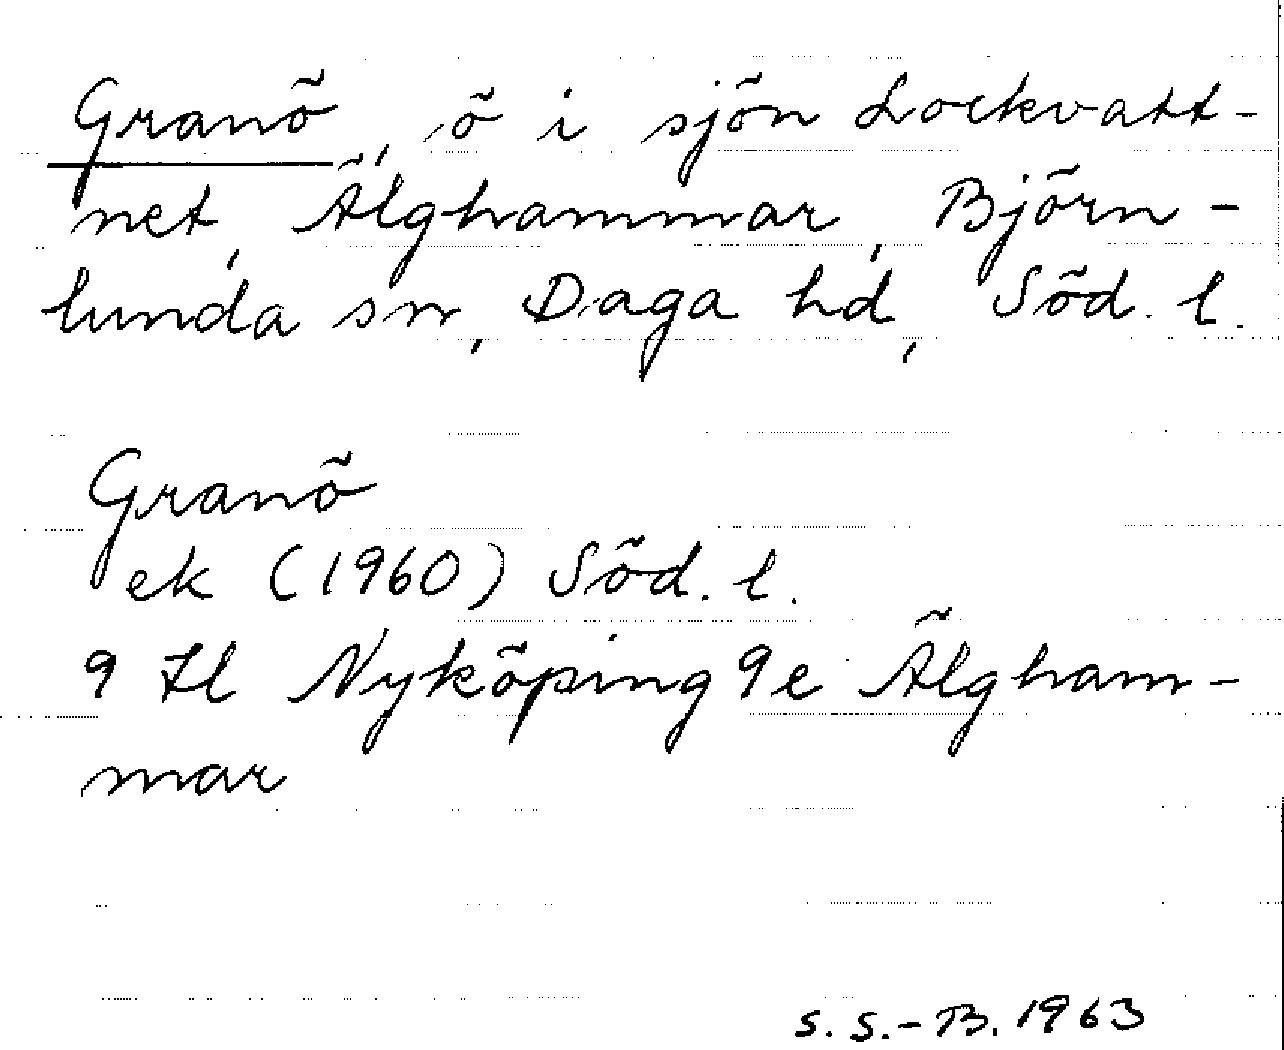 Granö, ö i sjön Lockvatt-
net, Älghammar, Björn-
lunda sn, Daga hd, Söd. l.
Granö
ek (1960) Söd. l.
9 Hl Nyköping 9e Älgham-
mar
S. S.-B. 1963